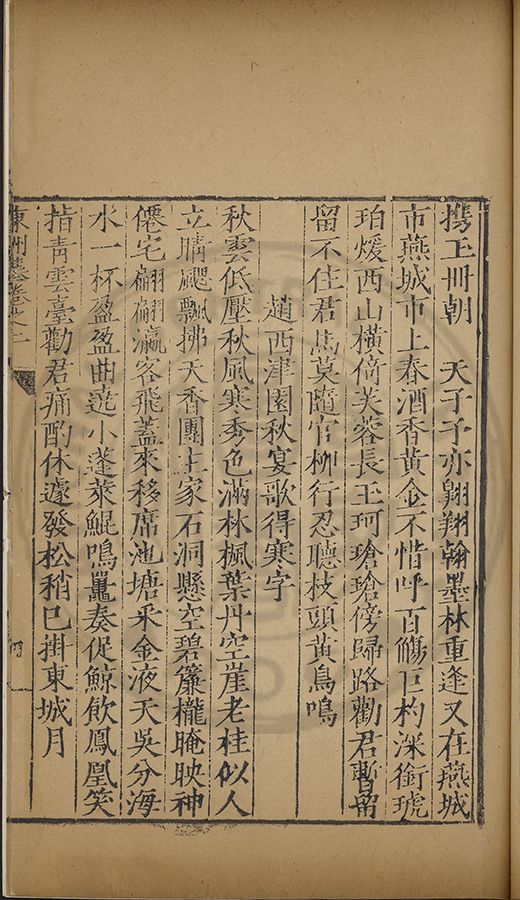 攜玉冊朝　天子予亦翱翔翰墨林重逢又在燕城
市燕城市上春酒香黃金不惜呼百觴巨杓深銜琥
珀煖西山橫倚芙蓉長玉珂瑲瑲傍歸路勸君暫留
留不住君馬莫隨官柳行忍聽枝頭黃鳥鳴
趙西津園秋宴歌得寒字
秋雲低壓秋風寒秀色滿林楓葉丹空崖老桂似人
立晴飔飄拂天香團主家石洞懸空碧簾櫳晻映神
僊宅翩翩瀛客飛蓋來移席池塘采金液天吳分海
水一杯盈盈曲遶小蓬萊鯤鳴鼉奏促鯨飲鳳凰笑
指青雲臺勸君痛酌休遽發松稍已掛東城月
東洲 卷之二
四